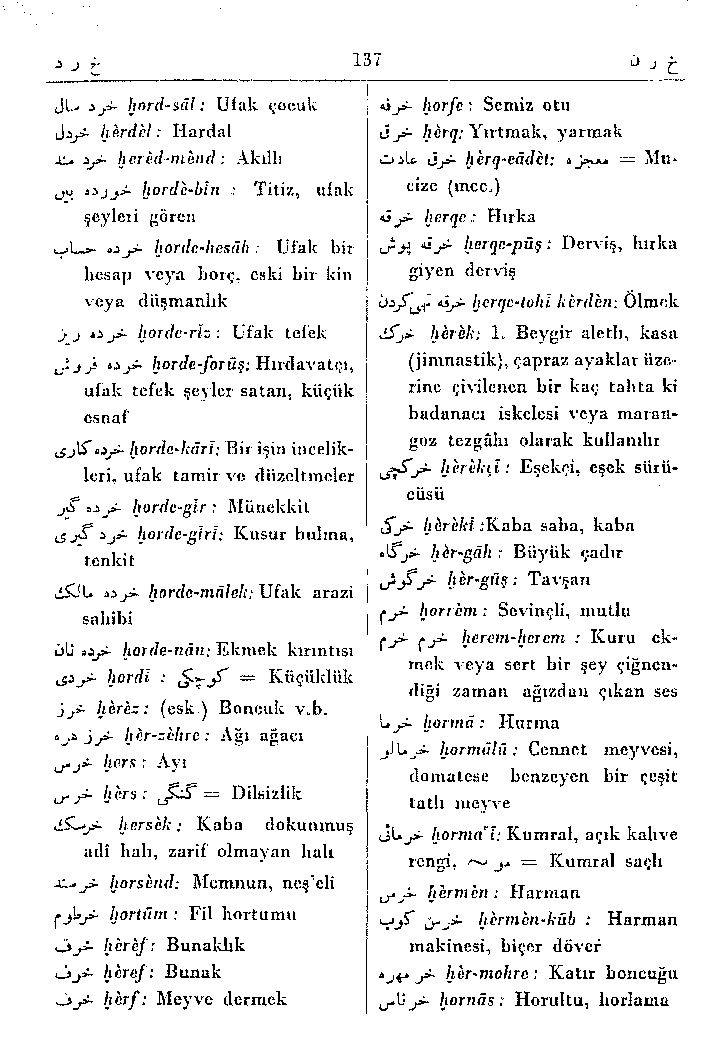 خ ر د
137
خ ر ن
خرد سال ḫord-sāl: Ufak çocuk
خردل ḫèrdèl: Hardal
خرد مند ḫerèd-mènd: Akıllı
خورده بین ḫordè-bîn : Titiz, ufak
şeyleri gören
خرده حساب ḫorde-hesāb: Ufak bir
hesap veya borç, eski bir kin
veya düşmanlık
خرده ریز ḫorde-rîz: Ufak tefek
خرده فروش ḫorde-forūş: Hırdavatçı,
ufak tefek şeyler satan, küçük
esnaf
خرده کاری ḫorde-kārî: Bir işin incelik-
leri, ufak tamir ve düzeltmeler
خرده گیر ḫorde-gîr: Münekkit
خرده گیری ḫorde-gîrî: Kusur bulma,
tenkit
خرده مالک ḫorde-mālek: Ufak arazi
sahibi
خرده نان ḫorde-nān: Ekmek kırıntısı
خردی ḫordî : کوچکی = Küçüklük
خرز ḫèrèz: (esk.) Boncuk v.b.
خرز هره ḫèr-zèhre: Ağı ağacı
خرس ḫers: Ayı
خرس ḫèrs: گنگی = Dilsizlik
خرسک ḫersèk: Kaba dokunmuş
adî halı, zarif olmayan halı
خرسند ḫorsènd: Memnun, neş'eli
خرطوم ḫortūm: Fil hortumu
خرف ḫèrèf: Bunaklık
خرف ḫèref: Bunak
خرف ḫèrf: Meyve dermek
خرفه ḫorfe: Semiz otu
خرق ḫèrq: Yırtmak, yarmak
خرق عادت ḫèrq-eādèt: معجزه = Mu-
cize (mec.)
خرقه ḫerqe: Hırka
خرقه پوش ḫerqe-pūş: Derviş, hırka
giyen derviş
خرقه تهی کردن ḫerqe-tohî kèrdèn: Ölmek
خرک ḫèrèk: 1. Beygir aleti, kasa
(jimnastik), çapraz ayaklar üze-
rine çivilenen bir kaç tahta ki
badanacı iskelesi veya maran-
goz tezgâhı olarak kullanılır
خرکچی ḫèrèkçî: Eşekçi, eşek sürü-
cüsü
خرکی ḫèrèkî: Kaba saba, kaba
خرگاه ḫèr-gāh: Büyük çadır
خرگوش ḫèr-gūş: Tavşan
خرم ḫorrèm: Sevinçli, mutlu
خرم خرم ḫerem-ḫerem : Kuru ek-
mek veya sert bir şey çiğnen-
diği zaman ağızdan çıkan ses
خرما ḫormā: Hurma
خرمالو ḫormālū: Cennet meyvesi,
domatese benzeyen bir çeşit
tatlı meyve
خرمائی ḫorma'î: Kumral, açık kahve
rengi, مو ~ = Kumral saçlı
خرمن ḫèrmèn: Harman
خرمن کوب ḫèrmèn-kūb : Harman
makinesi, biçer döver
خر مهره ḫèr-mohre: Katır boncuğu
خرناس ḫornās: Horultu, horlama